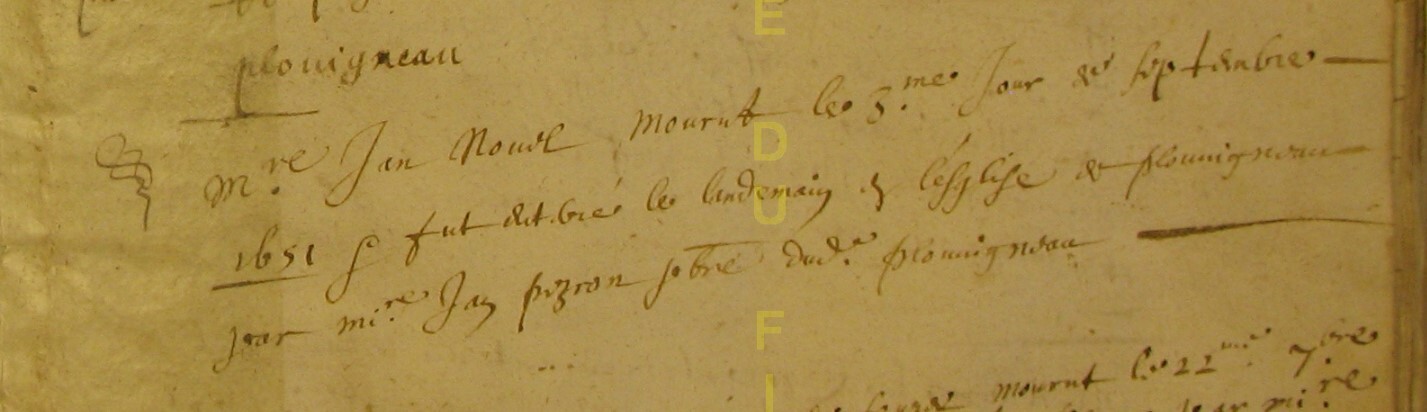 plouigneau
M.re Jan Nouel Mourut le 5.me Jour de septembre
1651 & fut enterré le landemain en l'esglise de plouuigneau
par mi.re Jan pezron pbre dud. plouuigneau
mourut le 22me 7.bre
par mi.re
E
D
U
F
I